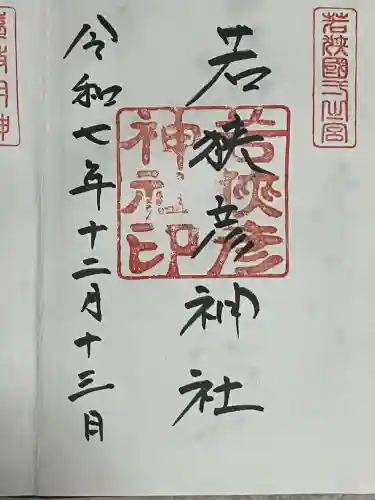 若狭國一之宮
若狭彦神社
若狭彦
神社印
令和七年十二月十三日